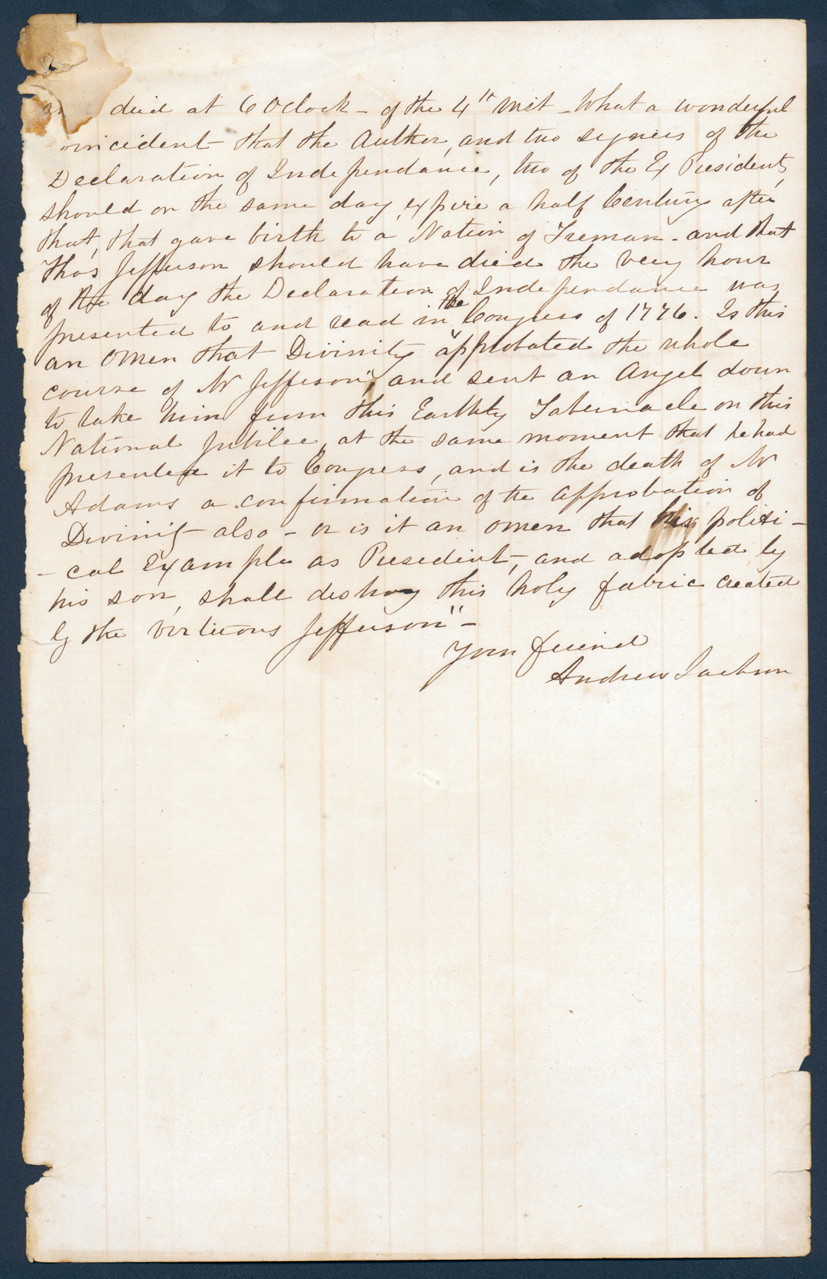 died at 6 OClock - of the 4th Inst - What a wonderful
coincident that the Author, and two signers of the
Declaration of Independance, two of the Ex Presidents,
should on the same day expire a half Century after
that, that gave birth to a Nation of Freman - and that
Thos Jefferson should have died the very hour
of the day the Declaration of Independance was
presented to and read in the Congress of 1776. Is this
an omen that Divinity approbated the whole
course of Mr Jefferson, and sent an Angel down
to take him from this Earthly Tabernacle on this
National Jubilee, at the same moment that he had
presented it to Congress, and is the death of Mr
Adams a confirmation of the approbation of
Divinity also - or is it an omen that his politi-
-cal Example as President, and adopted by
his son, shall destroy this holy fabric created
by the virtuous Jefferson" -
Your friend
Andrew Jackson